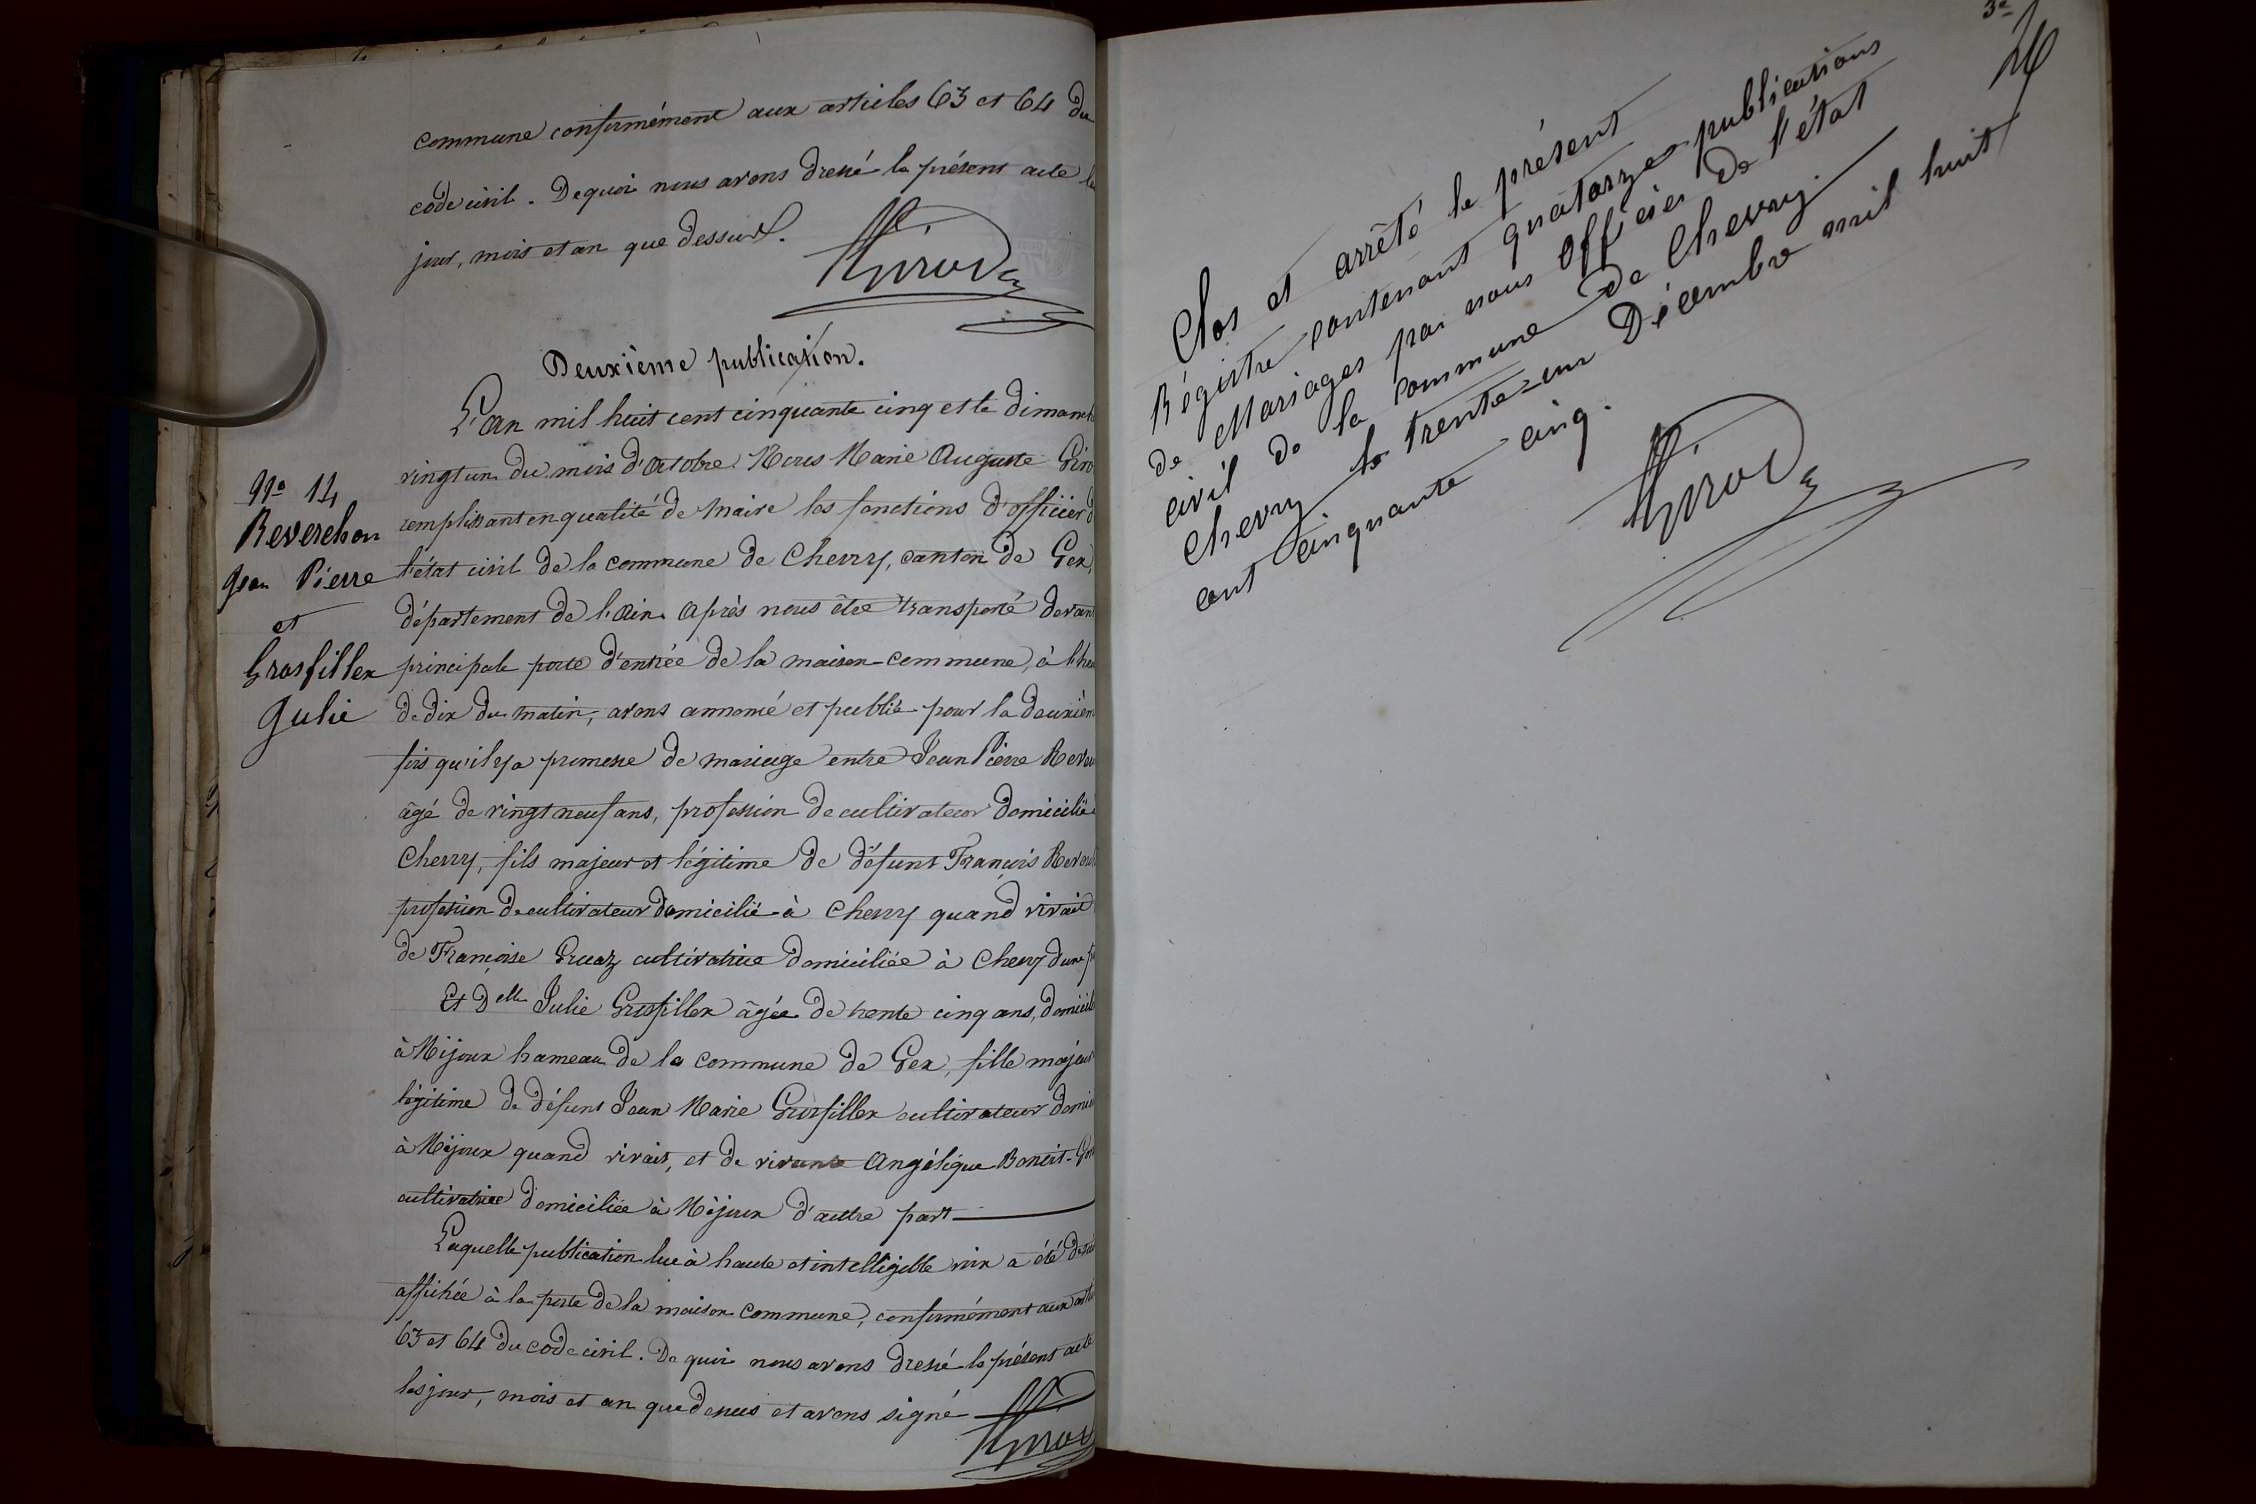 commune conformément aux articles 63 et 64 du
code civil. De quoi nous avons dressé le présent acte
jour, mois et an que dessus.
Girod
Deuxième publication.
L'an mil huit cent cinquante cinq et le dimanch
vingt un du mois d'Octobre. Nous Marie Auguste Giro
remplissant en qualité de Maire les fonctions d'officier d
l'état civil de la commune de Chevry, canton de Gex,
département de l'Ain. Après nous être transporté devant
principale porte d'entrée de la maison-commune, à l'heu
de dix du matin, avons annoncé et publié pour la deuxièm
fois qu'il y a promesse de mariage entre Jean Pierre Rever
âgé de vingt neuf ans, profession de cultivateur domicilié
Chevry, fils majeur et légitime de défunt François Rever
profession de cultivateur domicilié à Chevry quand vivait
de Françoise Gruaz cultivatrice domiciliée à Chevry d'une p
Et Delle Julie Grosfillex âgée de trente cinq ans, domicili
à Mijoux hameau de la commune de Gex, fille majeur
légitime de défunt Jean Marie Grosfillex cultivateur domi
à Mijoux quand vivait, et de vivante Angélique Benoit-Gon
cultivatrice domiciliée à Mijoux d'autre part
Laquelle publication lue à haute et intelligible voix a été de
affichée à la porte de la maison commune, conformément aux arti
63 et 64 du code civil. De quoi nous avons dressé le présent acte
les jour, mois et an que dessus et avons signé
Girod
No 14
Reverchon
Jean Pierre
et
Grosfillex
Julie
3e
Clos et arrêté le présent
Régistre contenant quatorze publications
de Mariages par nous Officier de l'état
civil de la commune de Chevry.
Chevry le trente-un Décembre mil huit
cent cinquante cinq.
Girod